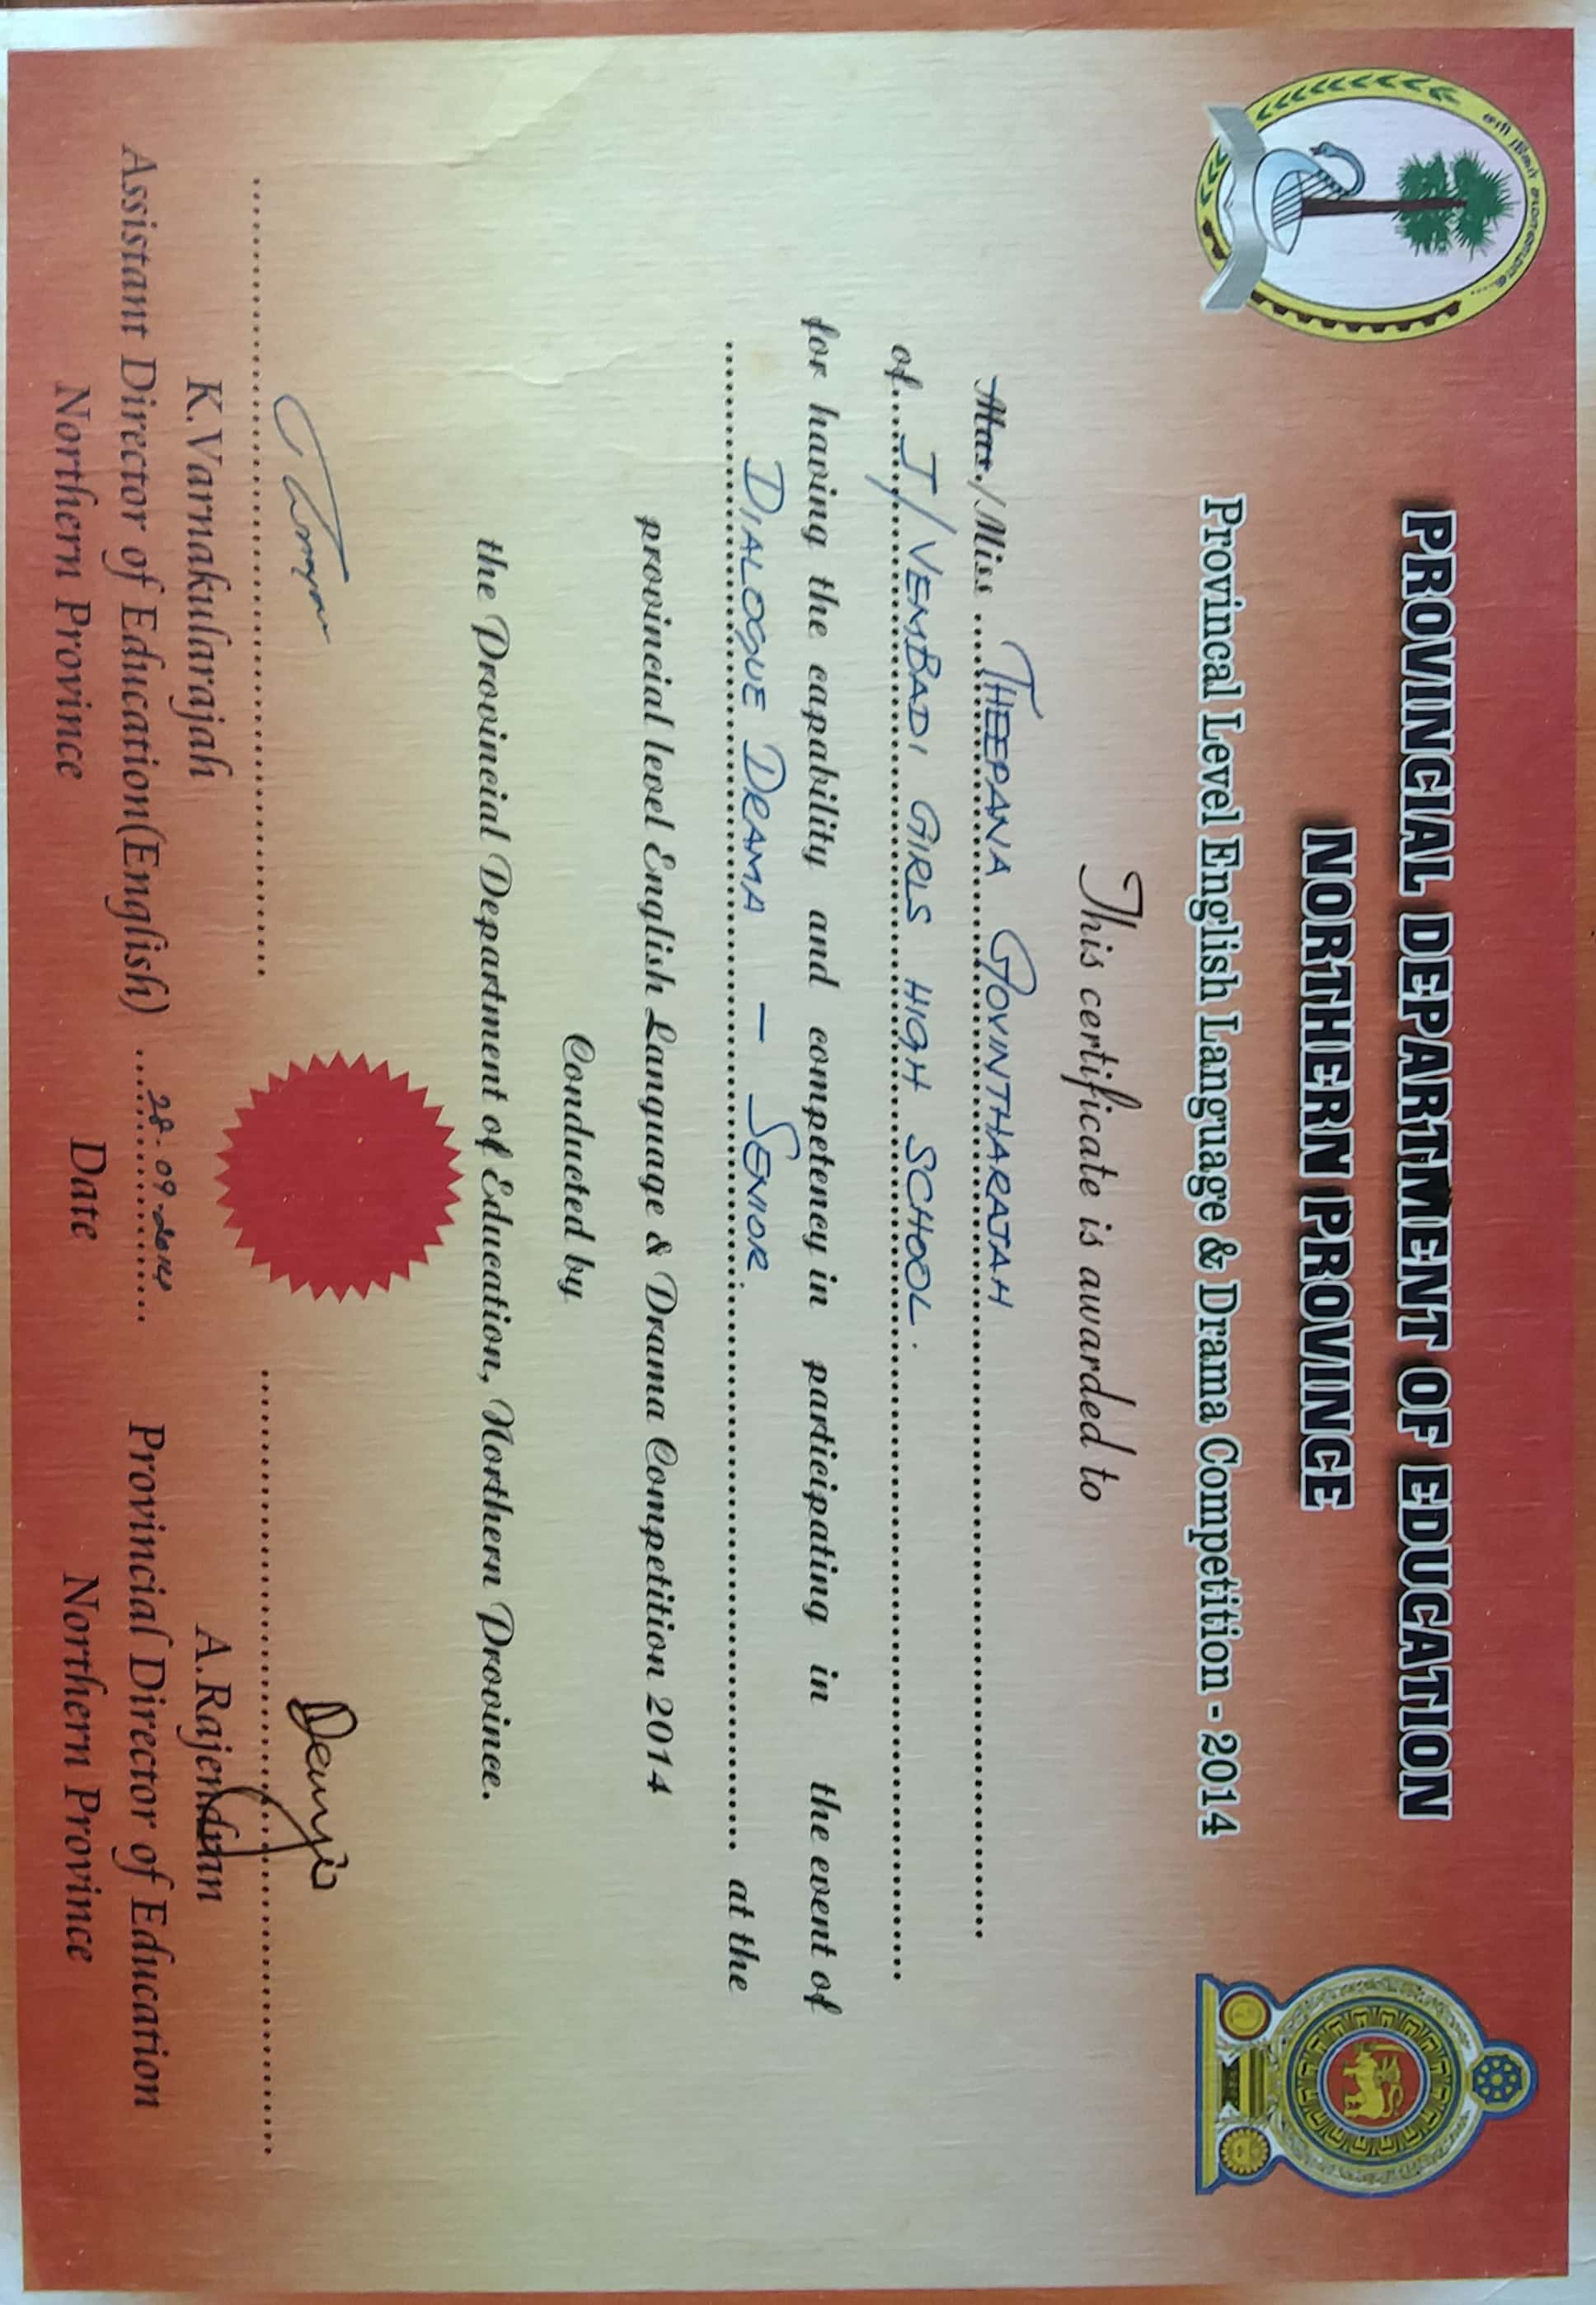 சரி நிகர் சமானமாக...
PROVINCIAL DEPARTMENT OF EDUCATION
NORTHERN PROVINCE
Provincal Level English Language & Drama Competition - 2014
This certificate is awarded to
Mas./Miss THEEPANA GOVINTHARAJAH
of J/VEMBADI GIRLS HIGH SCHOOL.
for having the capability and competency in participating in the event of
DIALOGUE DRAMA - SENIOR. at the
provincial level English Language & Drama Competition 2014
Conducted by
the Provincial Department of Education, Northern Province.
K.Varnakularajah
Assistant Director of Education(English)
Northern Province
28-09-2014
Date
A.Rajendran
Provincial Director of Education
Northern Province